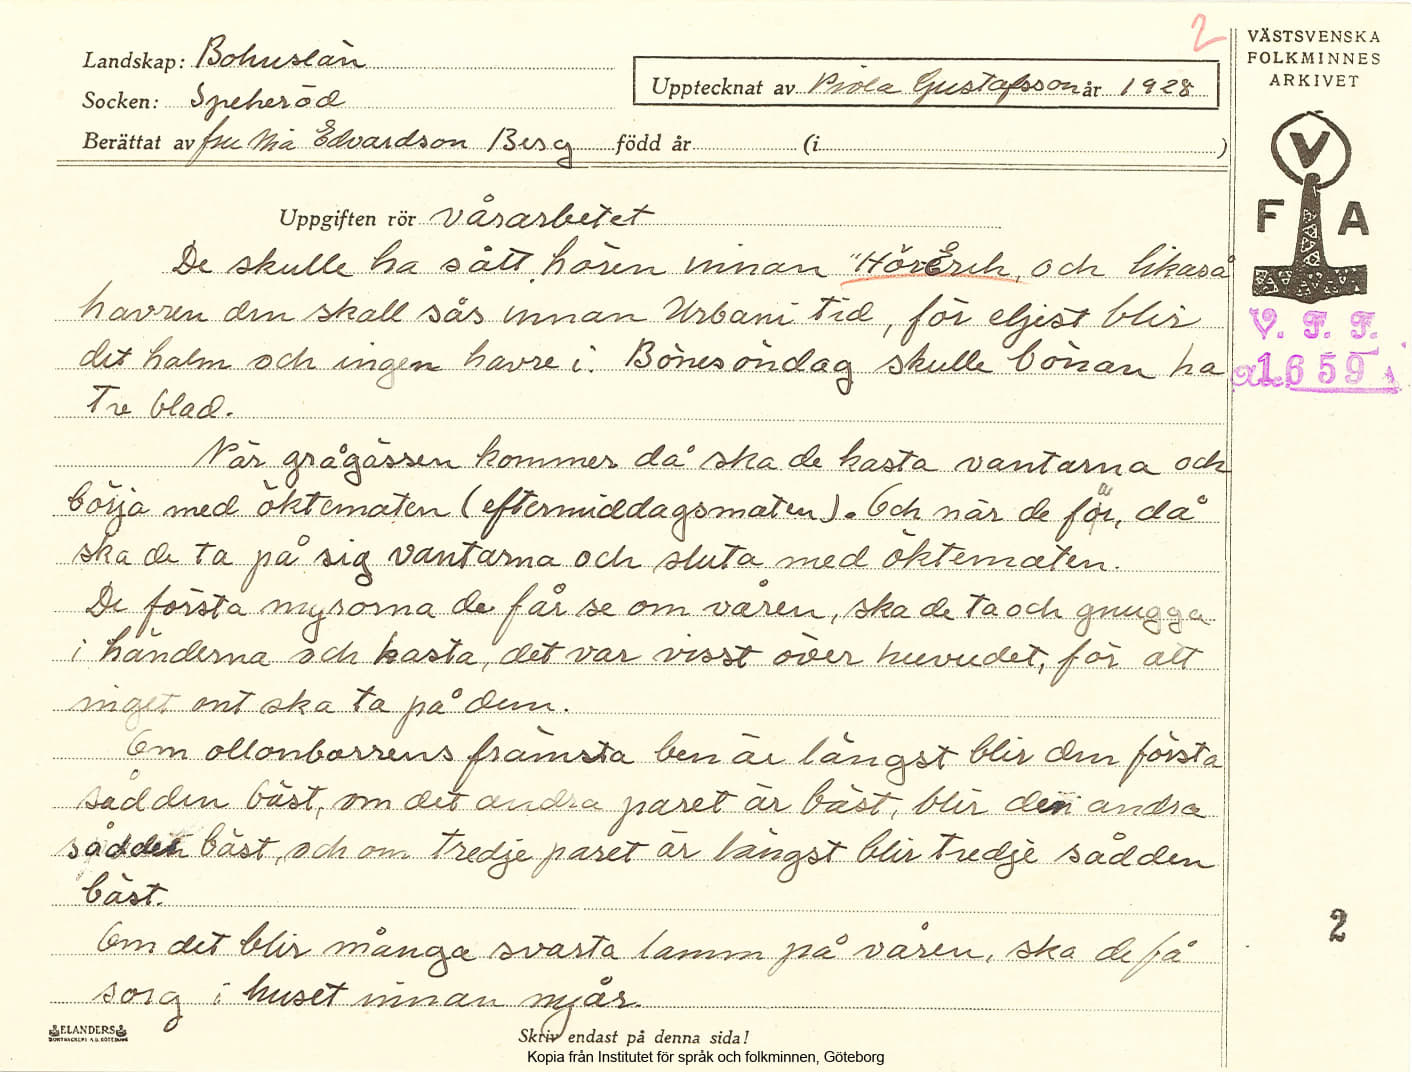 2
Landskap: Bohuslän
Socken: Spekeröd
Upptecknat av Viola Gustafsson år 1928
Berättat av fru Mia Edvardson Berg född år (i )
VÄSTSVENSKA
FOLKMINNES
ARKIVET
V
F A
V. F. F.
1659
Uppgiften rör vårarbetet
De skulle ha sått hören innan "HörErik, och likaså
havren den skall sås innan Urbani tid, för eljest blir
det halm och ingen havre i. Bönesöndag skulle bönan ha
tre blad.
När grågässen kommer då ska de kasta vantarna och
börja med öktematen (eftermiddagsmaten). Och när de far, då
ska de ta på sig vantarna och sluta med öktematen.
De första myrorna de får se om våren, ska de ta och gnugga
i händerna och kasta, det var visst över huvudet, för att
inget ont ska ta på dem.
Om ollonborrens främsta ben är längst blir den första
sådden bäst, om det andra paret är bäst, blir den andra
sådden bäst, och om tredje paret är längst blir tredje sådden
bäst.
Om det blir många svarta lamm på våren, ska de få
sorg i huset innan nyår.
2
ELANDERS
Skriv endast på denna sida!
Kopia från Institutet för språk och folkminnen, Göteborg